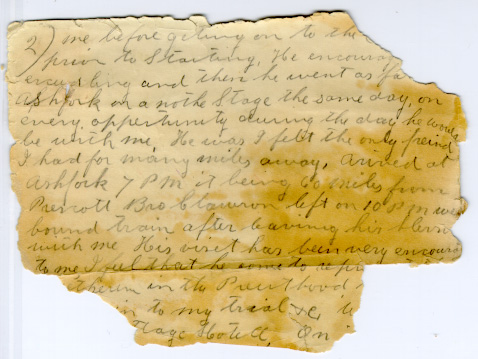 2) me before getting on to the
prior to Starting, He encourag
and then he went as far
Ashfork on a nothe Stage the same day, on
every oppertunity during the day he would
be with me, He was I felt the only freind
I had for many miles away, arived at
Ashfork 7 PM it being 60 miles from
Prescott Bro Clawson left on 10 P M west
bound train after leaving his bless
with me His visit has been very encourag
to me I feel that he
therein in the Priesthood
in to my trial &c,
ttage Hotell, On